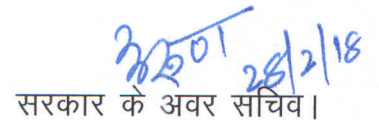 अरुण 28/2/18
सरकार के अवर सचिव।